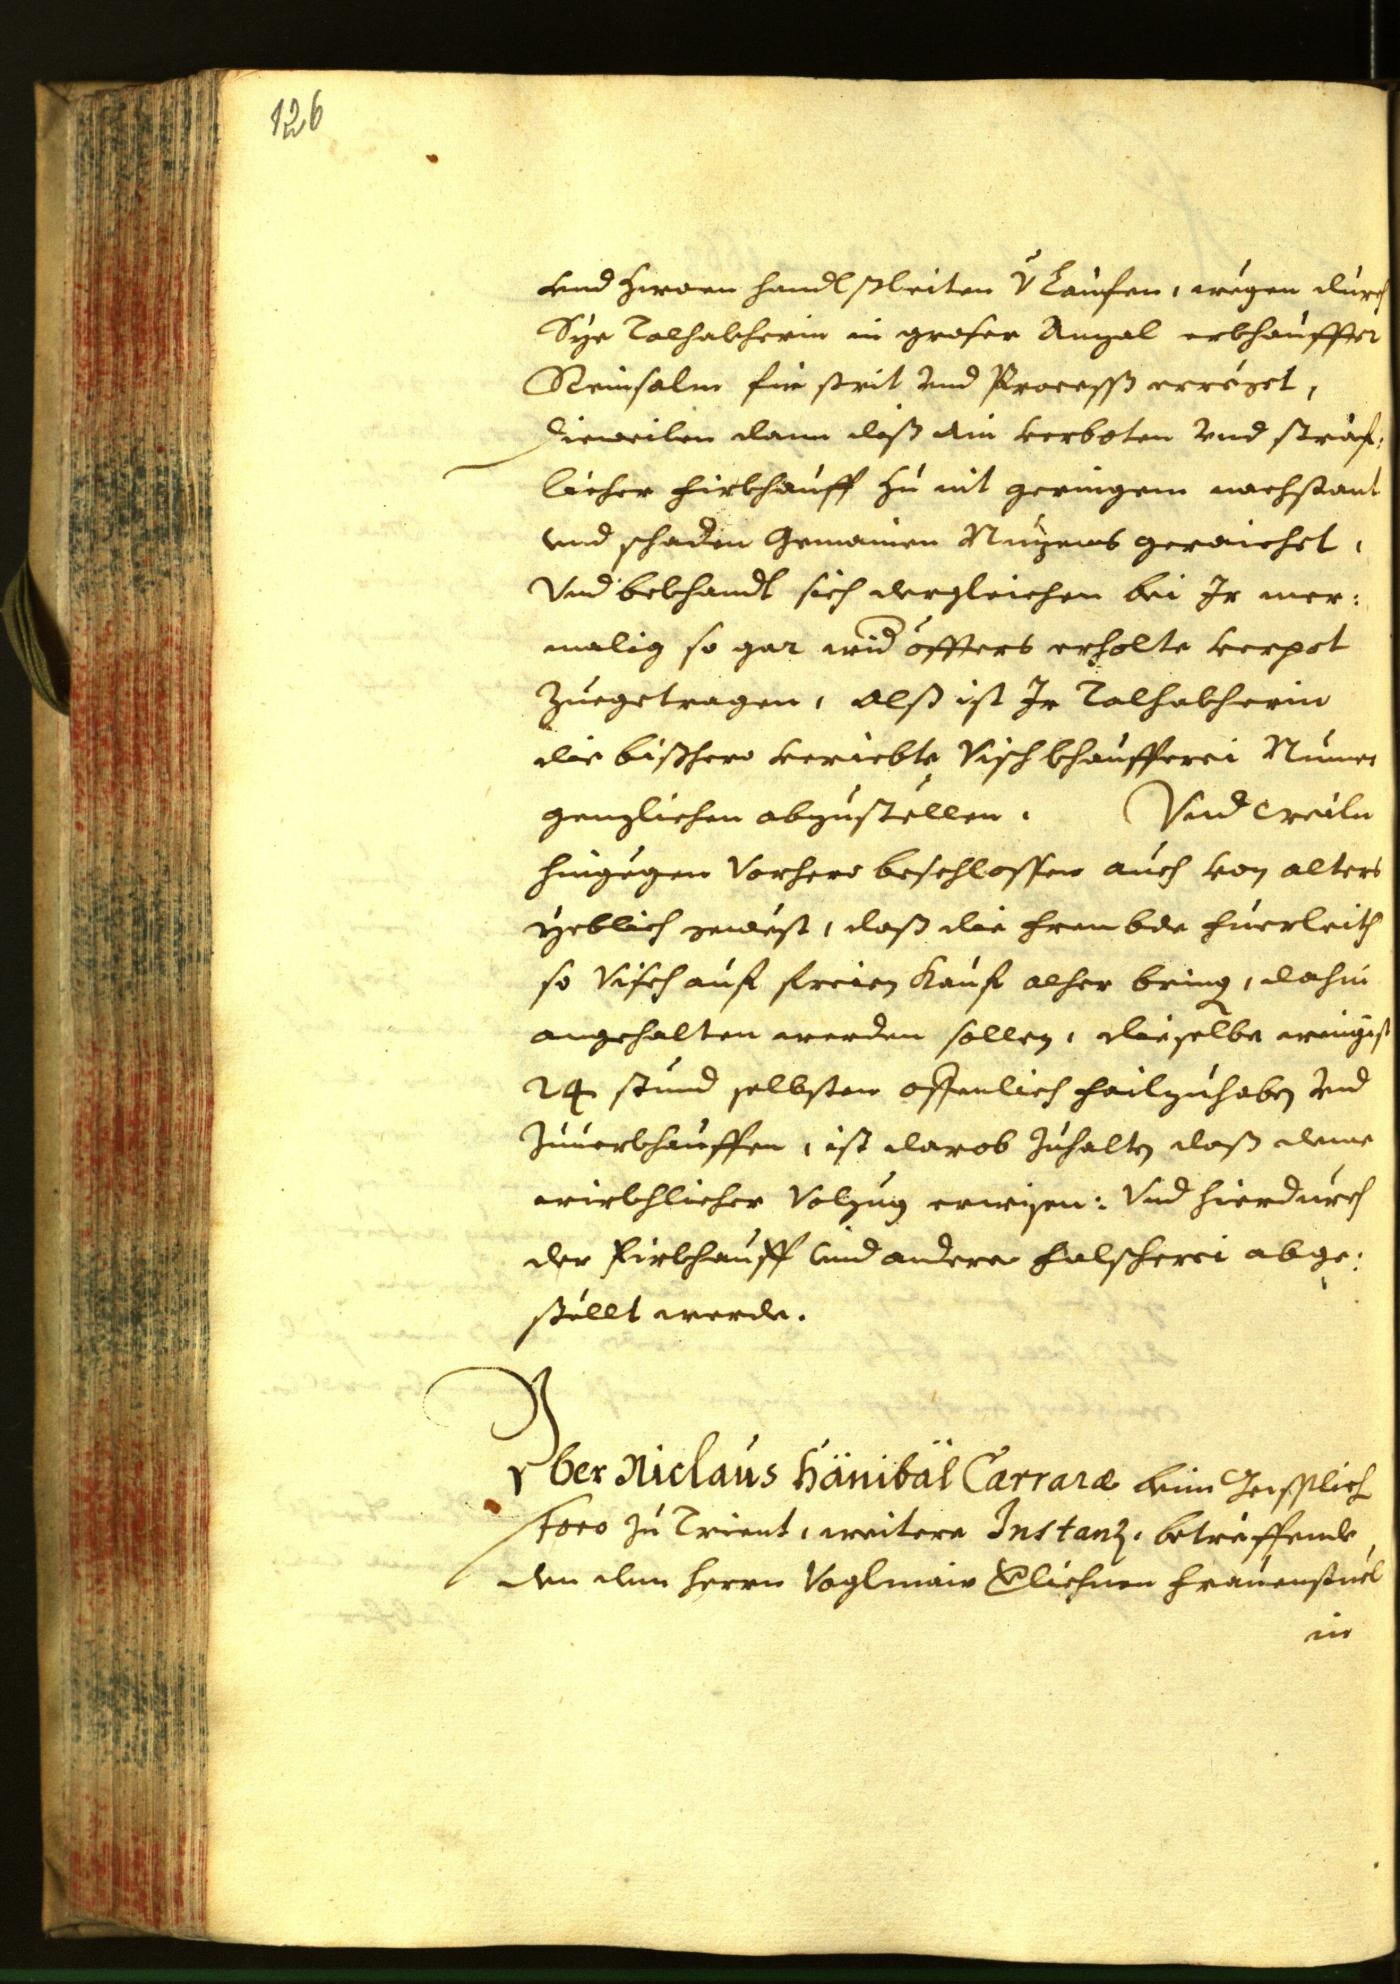 126
vnd Zwoen handlsleiten v̈ Laufen, wegen durch
Sÿe Talhakherin in groser Anzal erkhauffter
Reinsalm für strit Vnd Process erregt,
Dieweilen dann diß ein verboten Vnd straf„
licher firkhauff zu nit geringem nachstant
vnd schaden Gemainen Nuzens geraichet,
Vnd bekhandt sich dergleichen bei Ir mer„
malig so gar wid öffters erholte verpot
zuegetragen, Alß ist Ir Talhakherin
die bißhero veriebte Vischkhaufferei Nume
genzlichen abzustellen. Vnd weiln
hingegen Vorhero beschlossen auch von alters
yeblich gewest, daß die frembde fuerleith
so Visch auf freien Kauf alher bring, dahin
angehalten werden sollen, dieselbe wenigist
24 stund selbsten offenlich failzuhaben Vnd
Zuuerkhauffen, ist darob zuhalten daß deme
wirkhlicher Volzug erwisen: Vnd hierdurch
der Firkhauff Vnd andere falscherei abge„
stellt werde.
Yber Niclaus Hänibäl Carraræ beim Geistlich
foro zu Trient, weitere Instanz, betreffende
den dem herrn Voglmair Verlichnen frauenstuel
in